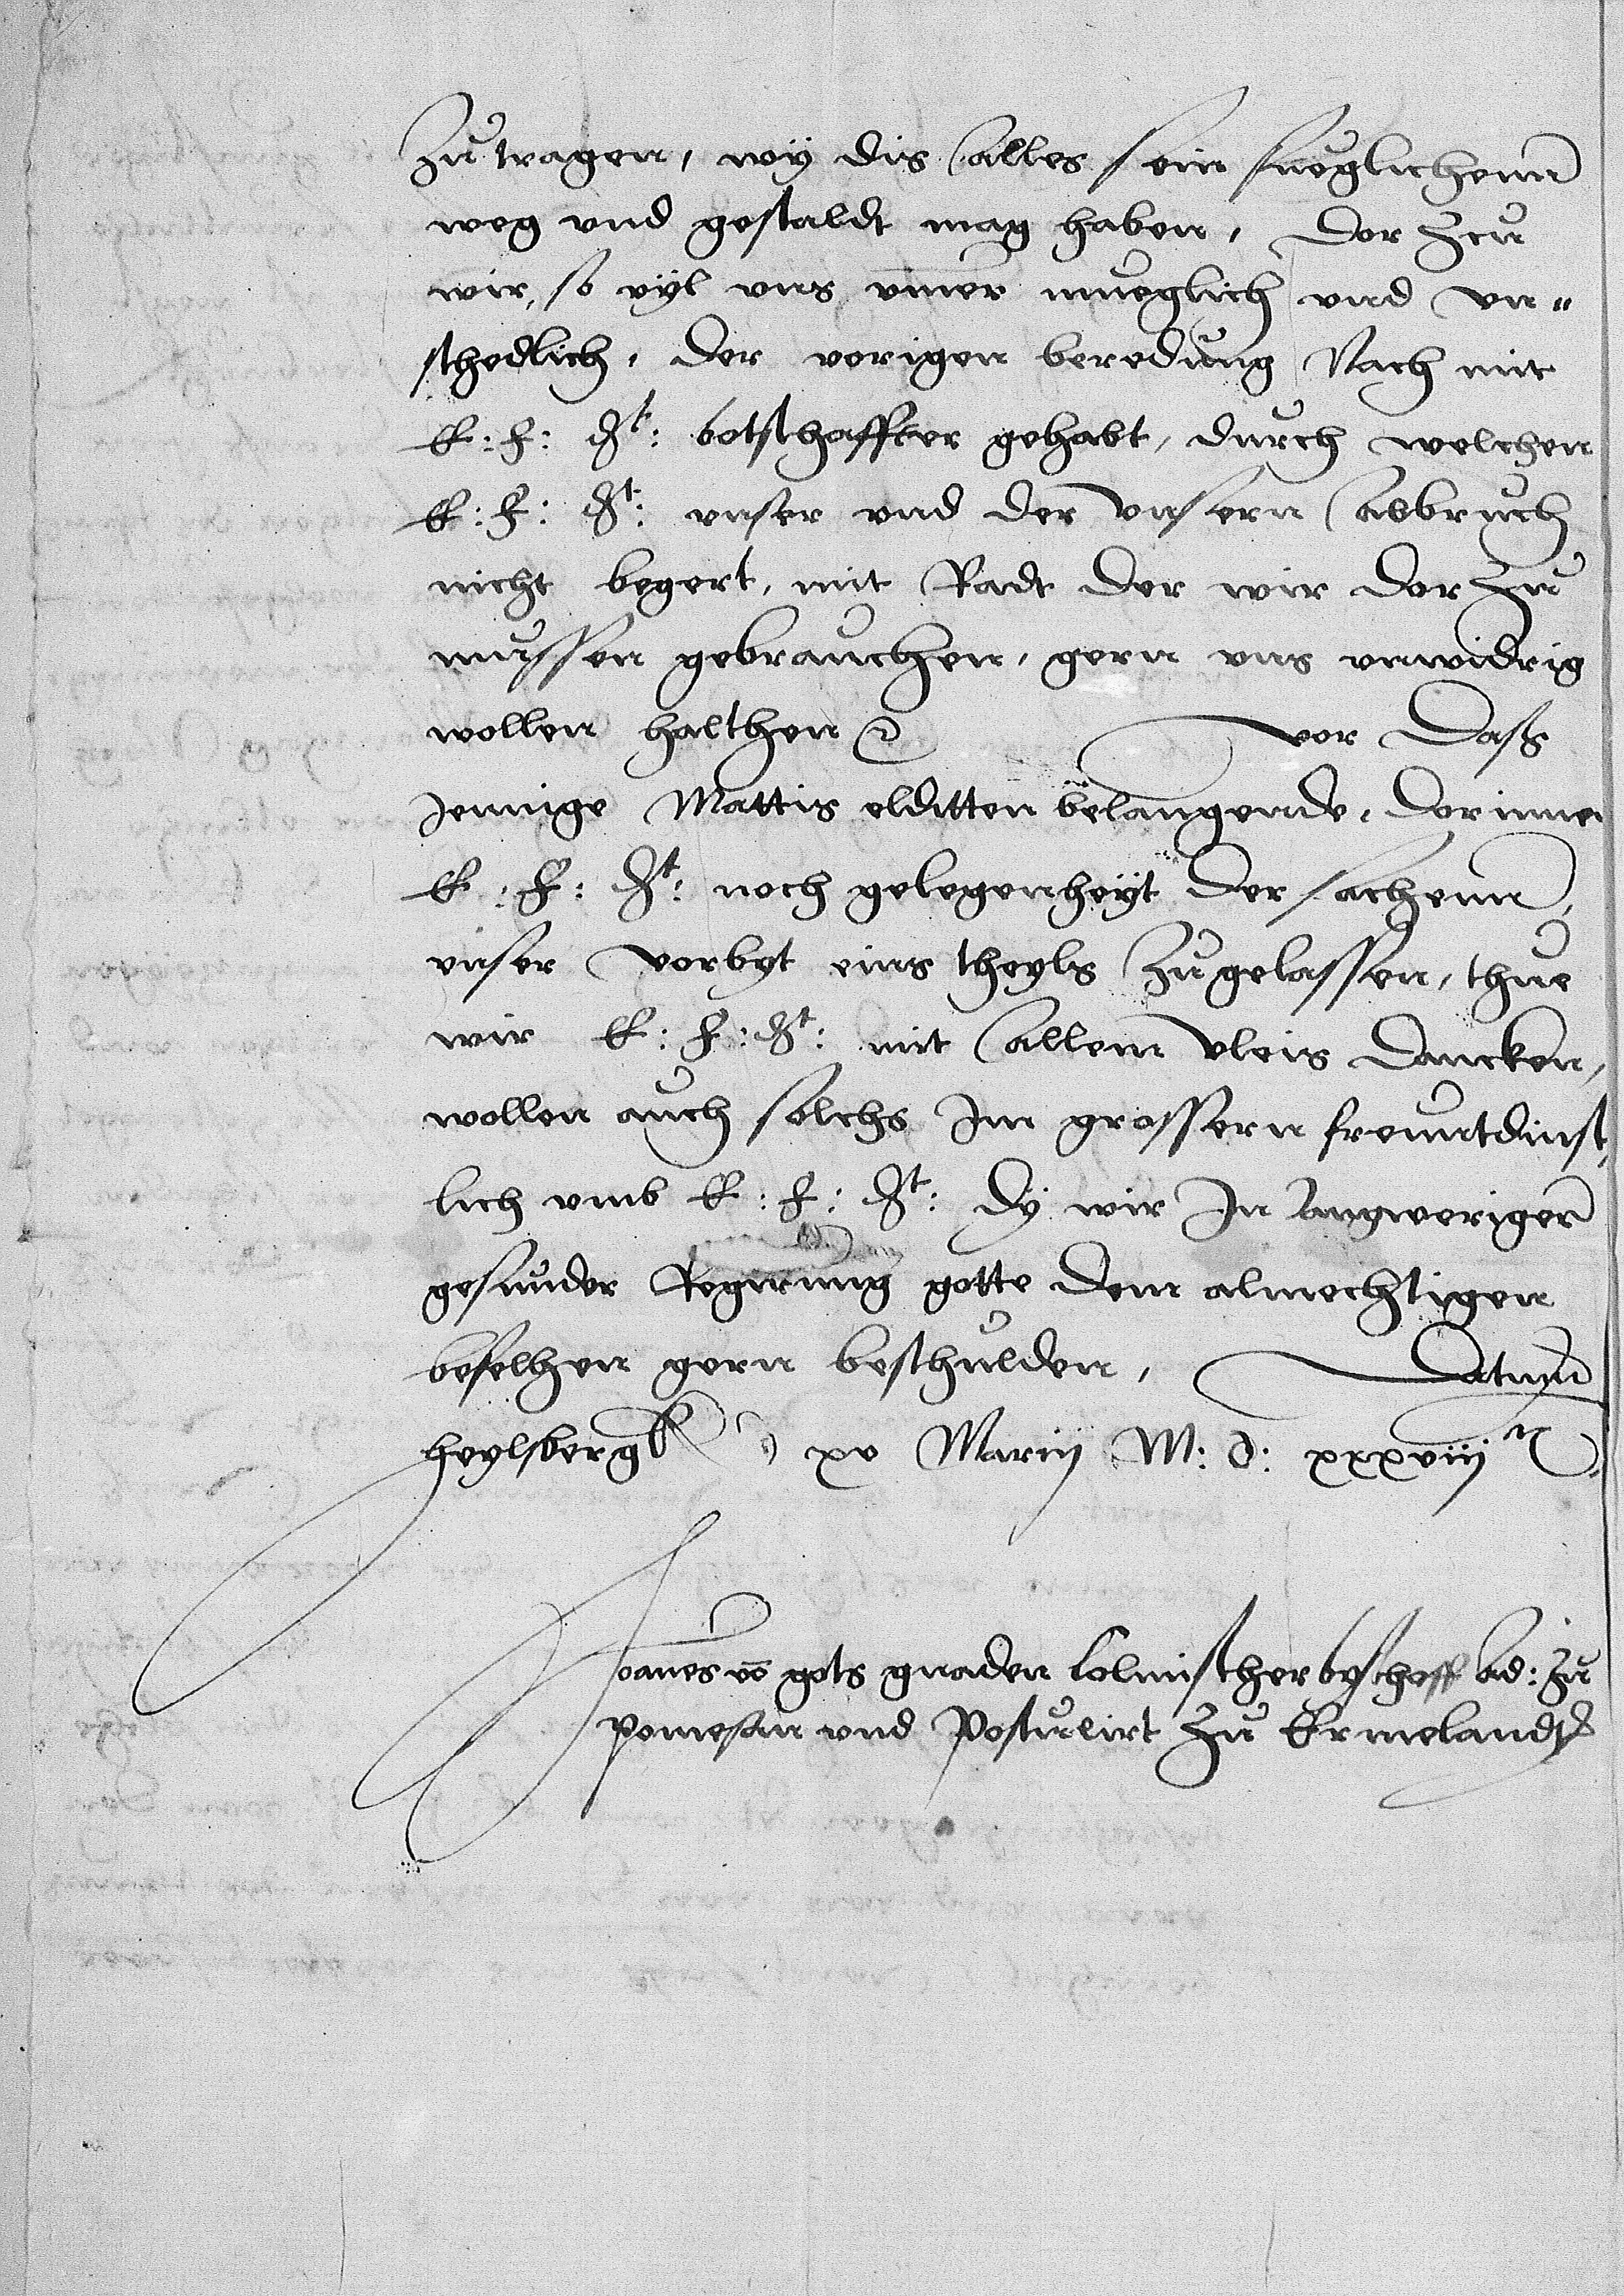 zutragen, wy dis alles sein fueglichenn
weg vnd gestaldt mag haben, Dor zcu
wir, so vyl vns vmer mueglich vnd vn„
schedlich, der vorigen beredung Nach mit
E: F: Dt: botschaffter gehabt, durch welchen
E: F: Dt: vnser vnd der vnsern abbruch
nicht begert, mit Radt der wir dor zu
mussen gebrauchen, gern vns vnwidrig
wollen halthen vor Dasz
Jennige Mattis elditten belangende, dorinnen
E: F: Dt: noch gelegenheyt der sachenn,
vnser vorbyt eins theyls zugelassen, thue
wir E: F: Dt: mit allem vleis dancken,
wollen auch solchs Im grossern freuntdinst„
lich vmb E: F: Dt: dy wir In langweriger
gesunder Regirung gotte dem almechtigen
befelhen gern beschulden, Datum
heylsbergk xv Marcij M: d: xxxviij
Joannes vo gots gnaden Colmischer byschoff ad: zu
pomesan vnd Postulirt zu Ermelandt